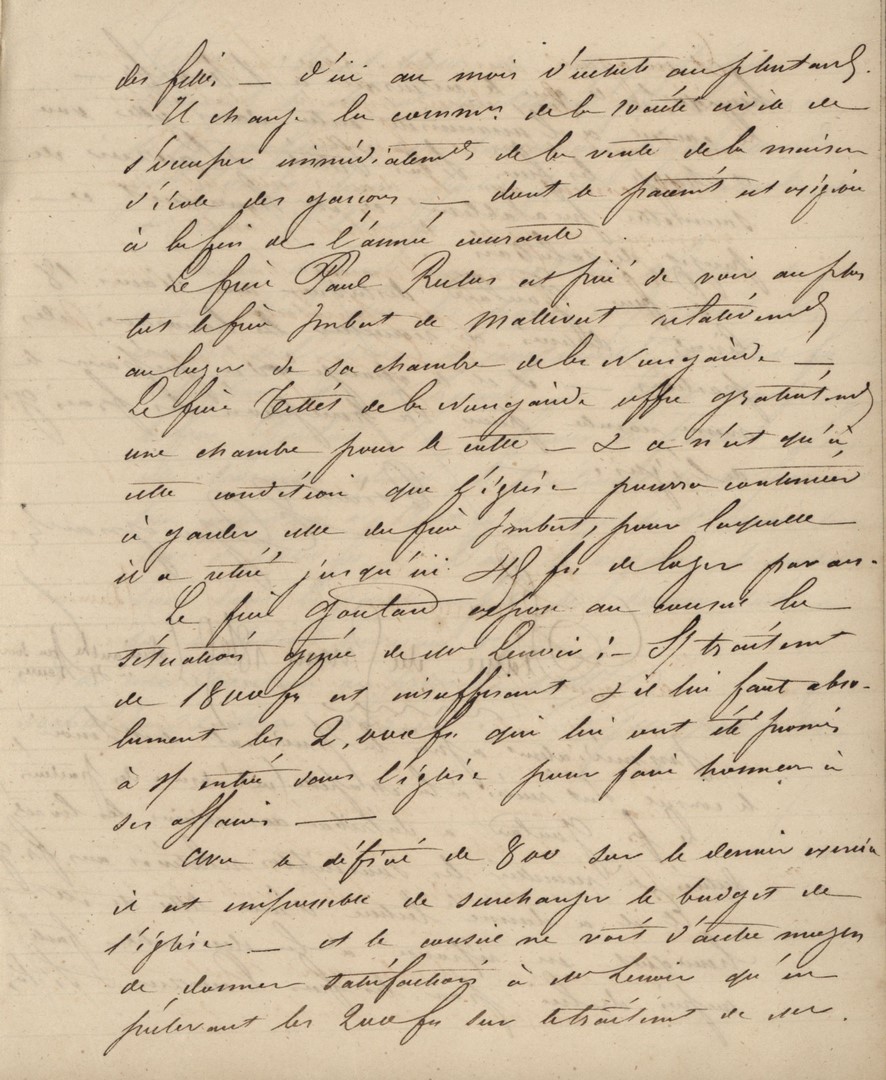 des filles — d'ici au mois d'octobre au plus tard.
Il charge la commn de la société civile de
s'occuper immédiatemt de la vente de la maison
d'école des garçons — dont le paiemt est exigible
à la fin de l'année courante.
Le frère Paul Rulus est prié de voir au plus
tôt le frère Imbert de Mallivert relativemt
au loyer de sa chambre de la
Le frère de la offre gratuitemt
une chambre pour le culte — & ce n'est qu'à
cette condition que l'église pourra continuer
à garder celle du frère Imbert, pour laquelle
il a retiré jusqu'ici fcs de loyer par an.
Le frère Goutard expose au conseil la
situation gênée de Mr Lenoir : — St traitement
de 1800 fcs est insuffisant & il lui faut abso-
lument les 2,000 fcs qui lui ont été promis
à st entrée dans l'église pour faire honneur à
ses affaires —
Avec le déficit de 800 sur le dernier exercice
il est impossible de surcharger le budget de
l'église — et le conseil ne voit d'autre moyen
de donner satisfaction à Mr Lenoir qu'en
prélevant les 200 fcs sur le traitemt de Mr.